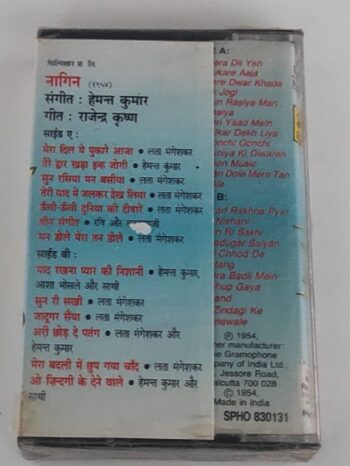 फिल्मिस्तान प्रा. लि.
नागिन (१९५४)
संगीत : हेमन्त कुमार
गीत : राजेन्द्र कृष्ण
साईड ए :
मेरा दिल ये पुकारे आजा • लता मंगेशकर
तेरे द्वार खड़ा इक जोगी • हेमन्त कुमार
सुन रसिया मन बसीया • लता मंगेशकर
तेरी याद में जलकर देख लिया • लता मंगेशकर
ऊँची-ऊँची दुनिया की दीवारें • लता मंगेशकर
बीन संगीत • रवि और
मन डोले मेरा तन डोले • लता मंगेशकर
साईड बी :
याद रखना प्यार की निशानी • हेमन्त कुमार,
आशा भोसले और साथी
सुन री सखी • लता मंगेशकर
जादूगर सैंया • लता मंगेशकर
अरी छोड़ दे पतंग • लता मंगेशकर और
हेमन्त कुमार
मेरा बदली में छुप गया चाँद • लता मंगेशकर
ओ ज़िन्दगी के देने वाले • हेमन्त कुमार और
साथी
E A:
era Dil Yeh
ukare Aaja
ere Dwar Khada
Jogi
un Rasiya Man
asiya
eri Yaad Mein
lkar Dekh Liya
Oonchi Oonchi
uniya Ki Diwaren
een Music
an Dole Mera Tan
le
B:
aad Rakhna Pyar
Nishani
un Ri Sakhi
adugar Saiyan
i Chhod De
tang
era Badli Mein
hup Gaya
and
Zindagi Ke
newale
℗ 1954,
her manufacturer:
e Gramophone
mpany of India Ltd.,
Jessore Road,
alcutta 700 028
© 1954,
Made in India
SPHO 830131